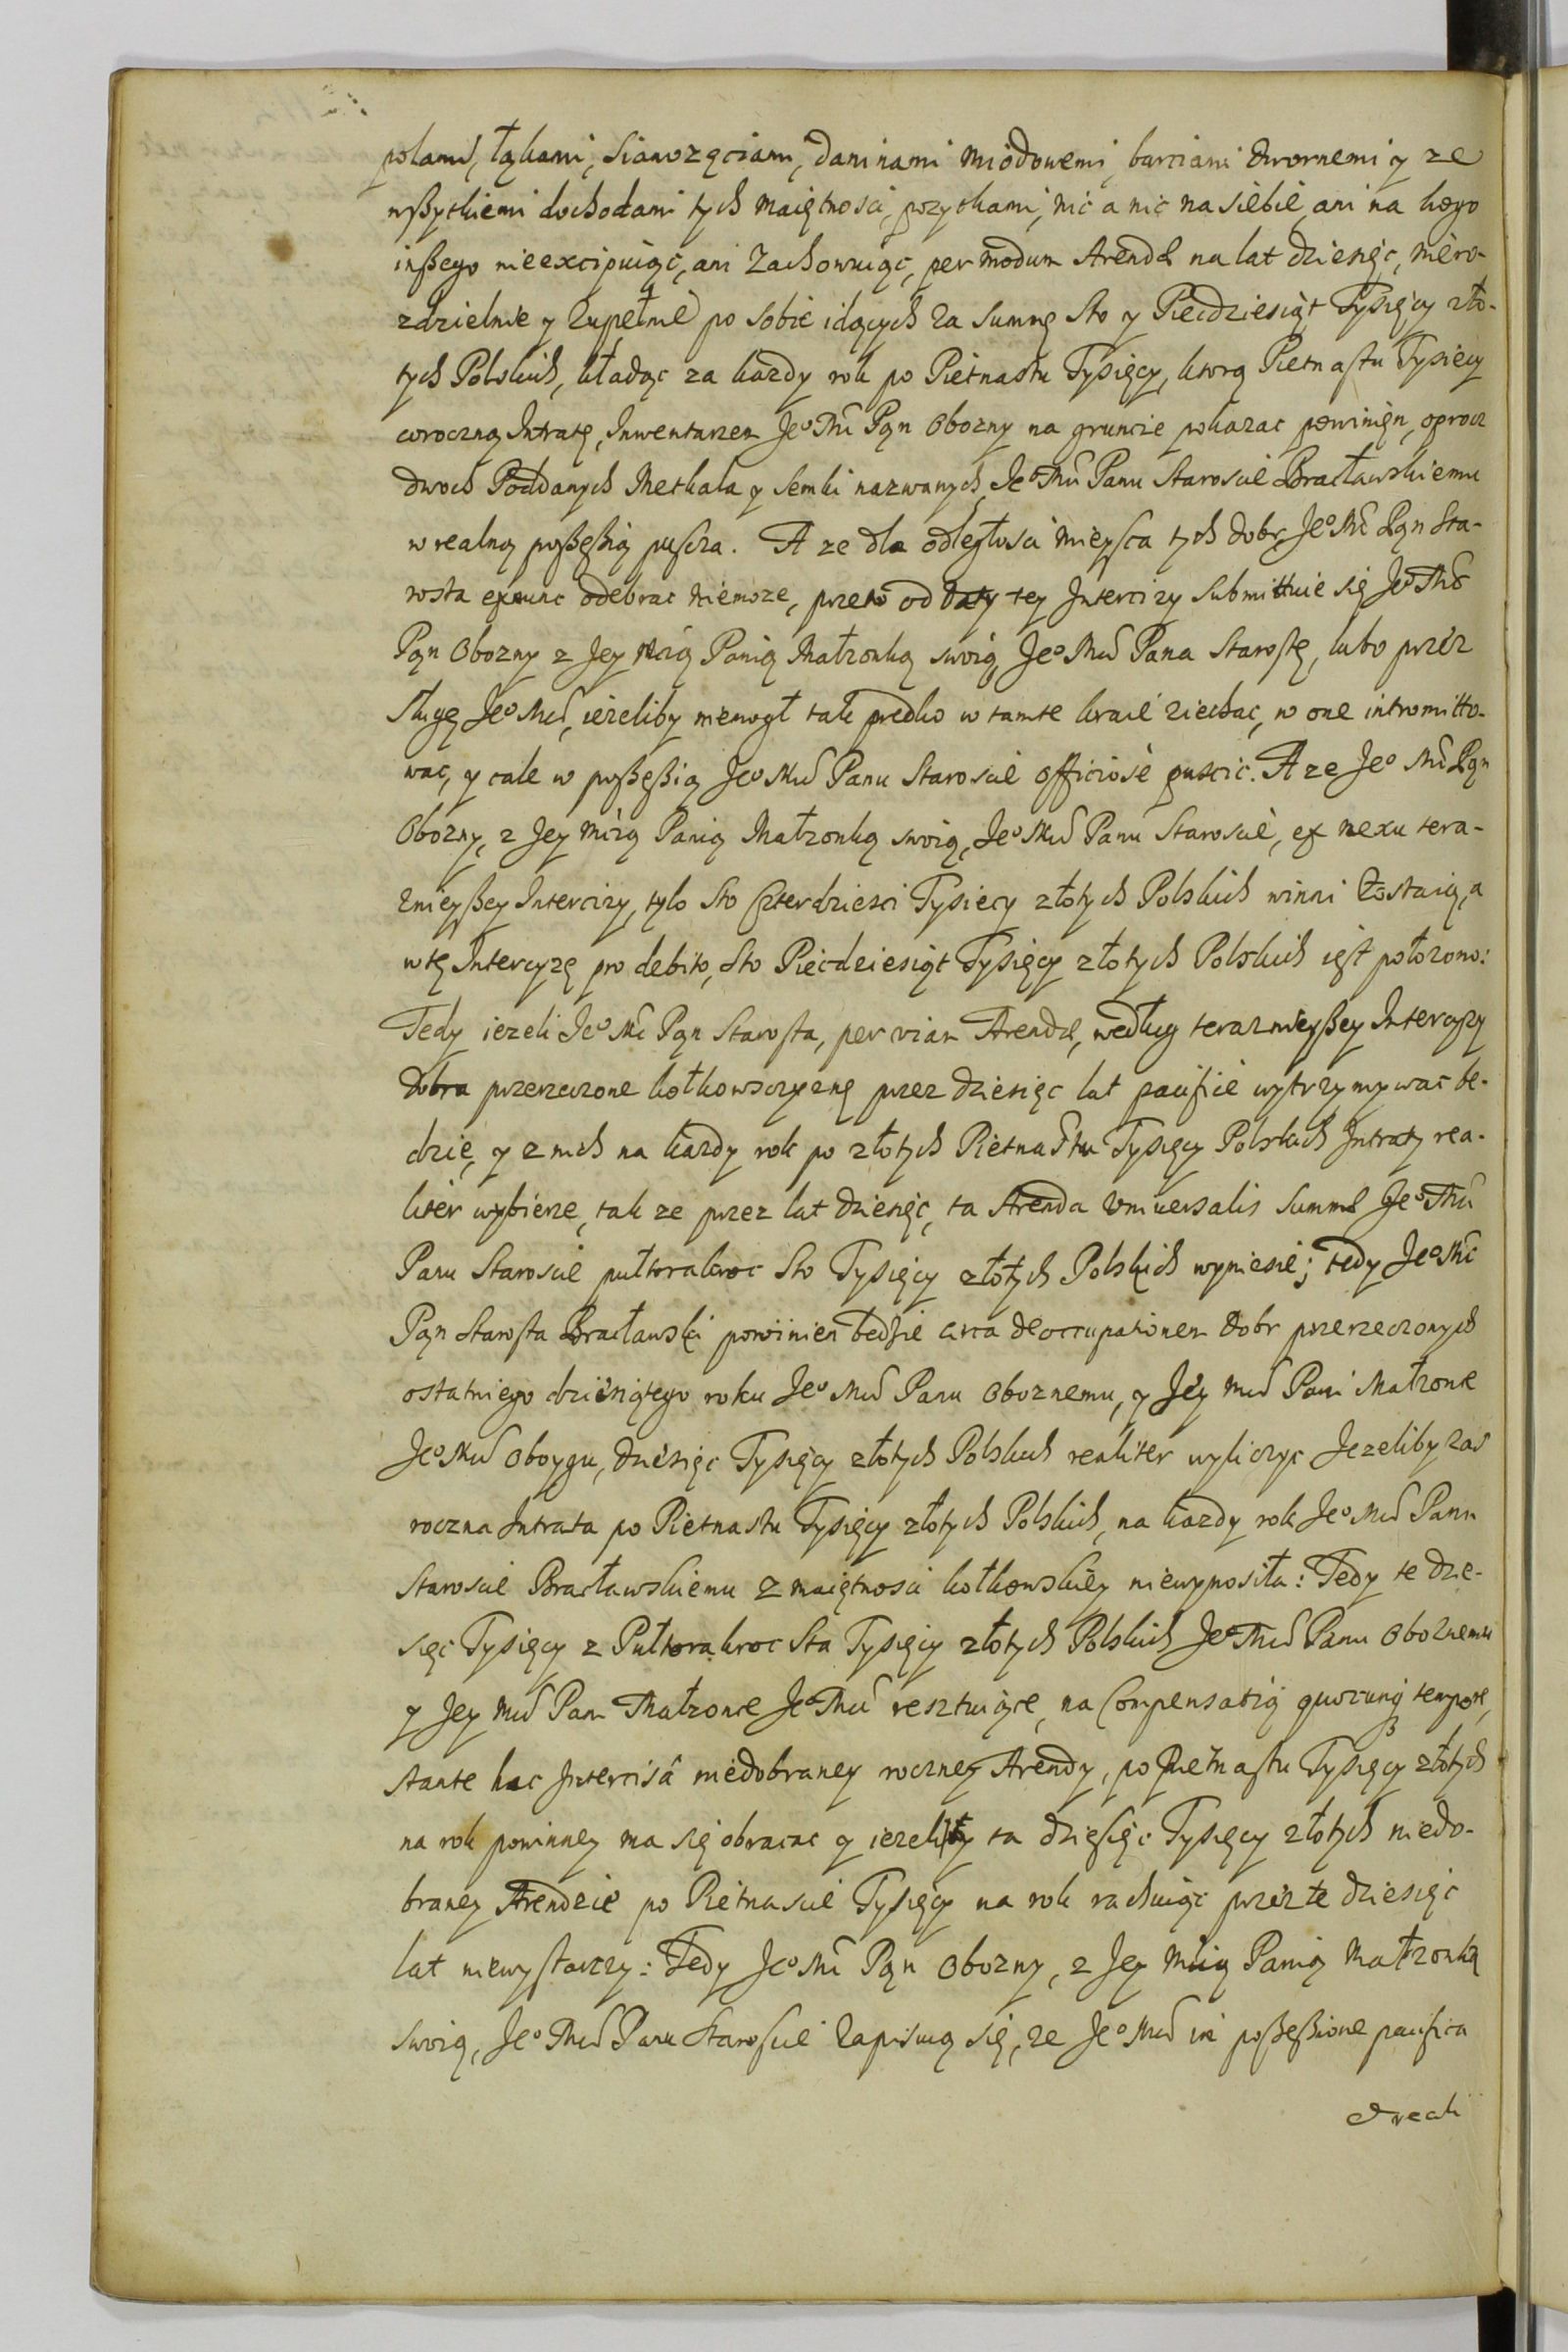 polami, łąkami, sianozęciami, daninami miodowemi, barciami dwornemi y ze
wszytkiemi dochodami tych maiętnosci, pozytkami, nic a nic na siebie, ani na kogo
inszego nieexcipuiąc, ani zachowuiąc, per modum Arendæ na lat dziesięc, niero-
zdzielnie y zupełnie po sobie idących za summę Sto y Piecdziesiąt Tysięcy zło-
tych Polskich, kładąc za kazdy rok po Piętnastu Tysięcy, ktorą Pietnastu Tysiecy
coroczną Intratę, Inwentarzem Jeo Mc Pąn Obozny na gruncie pokazac powinięn, oprocz
dwoch Poddanych Meskala y Semki nazwanych, Jeo Mci Panu Staroscie Bracławskiemu
w realną possessią puscza. A ze dla odległosci mieysca tych dobr, Jeo Mc Pąn Sta-
rosta ex nunc odebrac niemoze, przeto od daty tey Intercizy submittuie się Jeo Mc
Pąn Obozny z Jey Mcią Panią Małzonką swoią, Jeo Mci Pana Starostę, lubo przez
sługę Jeo Mci, iezeliby niemogł tak prędko w tamte kraie ziechac, w one intromitto-
wac, y cale w possessią Jeo Mci Panu Staroscie officiose puscic. A ze Jeo Mc Pąn
Obozny, z Jey Mcią Panią Małzonką swoią, Jeo Mci Panu Staroscie, ex nexu tera-
znieyszey Intercizy, tylo Sto Czterdziesci Tysiecy złotych Polskich winni zostaią, a
w tę Intercyzę pro debito, Sto Piecdziesiąt Tysięcy złotych Polskich iest połozono:
Tedy iezeli Jeo Mc Pąn Starosta, per viam Arendæ, według teraznieyszey Intercyzy
dobra przerzeczone kołkowsczyznę przez dziesięc lat pacifice wytrzymywac be-
dzie, y z nich na kazdy rok po złotych Pietnastu Tysięcy Polskich Intraty rea-
liter wybierze, tak ze przez lat dziesięc, ta Arenda Vniuersalis Summæ Jeo Mci
Panu Staroscie pułtorakroc Sto Tysięcy złotych Polskich wyniesie; tedy Jeo Mc
Pąn Starosta Bracławski powinien bedzie circa deoccupationem dobr przerzeczonych
ostatniego dziesiątego roku Jeo Mci Panu Oboznemu, y Jey Mci Pani Małzonce
Jeo Mci oboygu, dziesięc Tysięcy złotych Polskich realiter wyliczyc Jezeliby zas
roczna Intrata po Pietnastu Tysięcy złotych Polskich, na kazdy rok Jeo Mci Panu
Staroscie Bracławskiemu z maiętnosci kołkowskiey niewynosiła: Tedy te dzie-
sięc Tysięcy z Pułtorakroc Sta Tysięcy złotych Polskich Jeo Mci Panu Oboznemu
y Jey Mci Pani Małzonce Jeo Mci resztuiące, na Compensatią quocunq tempore,
stante hac Intercisâ niedobraney roczney Arendy, po Pietnastu Tysięcy złotych
na rok powinney ma się obracac y iezeliby ta dziesięc Tysięcy złotych niedo-
braney Arendzie po Pietnascie Tysięcy na rok rachuiąc przez te dziesięc
lat niewystarczy: Tedy Jeo Mc Pąn Obozny, z Jey Mcią Panią Małzonką
swoią, Jeo Mci Panu Staroscie zapisuią się, ze Jeo Mci in possessione pacifica
et reali